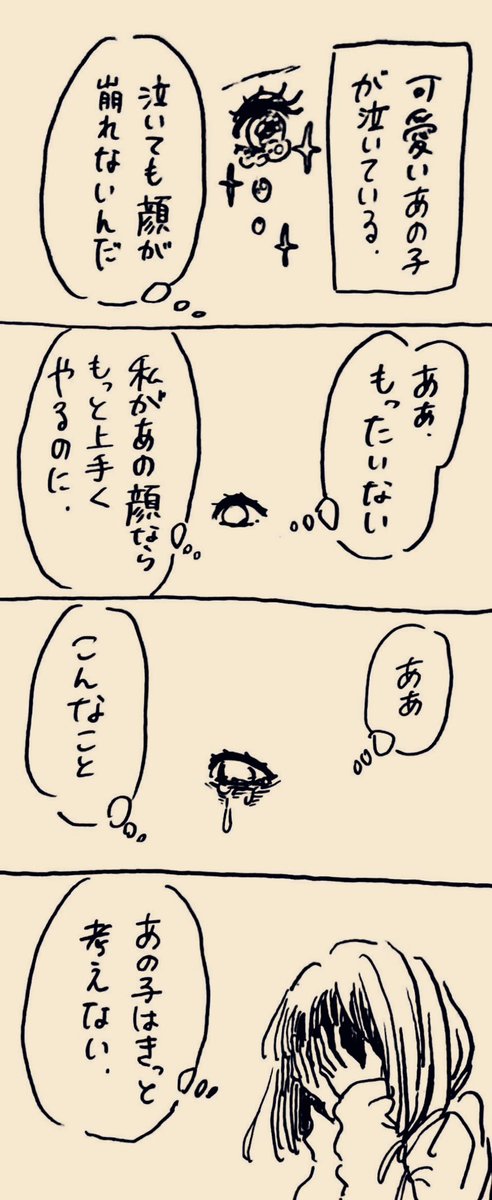 可愛いあの子
が泣いている.
泣いても顔が
崩れないんだ
ああ.
もったいない
私があの顔なら
もっと上手く
やるのに.
ああ
こんなこと
あの子はきっと
考えない.